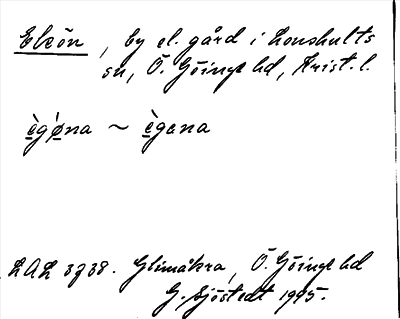 Ekeön, by el. gård i Lonshults
sn, Ö. Göinge hd, Krist. l.
ègøna ~ ègena
LAL 3738. Glimåkra, Ö. Göinge hd
G. Sjöstedt 1945.